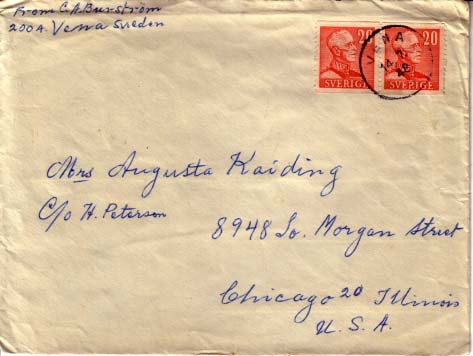 From C. A. Burström
2004. Vena Sweden
20 20
SVERIGE SVERIGE
VENA
Mrs Augusta Kaiding
C/o H. Peterson
8948 So. Morgan Street
Chicago 20 Illinois
U. S. A.